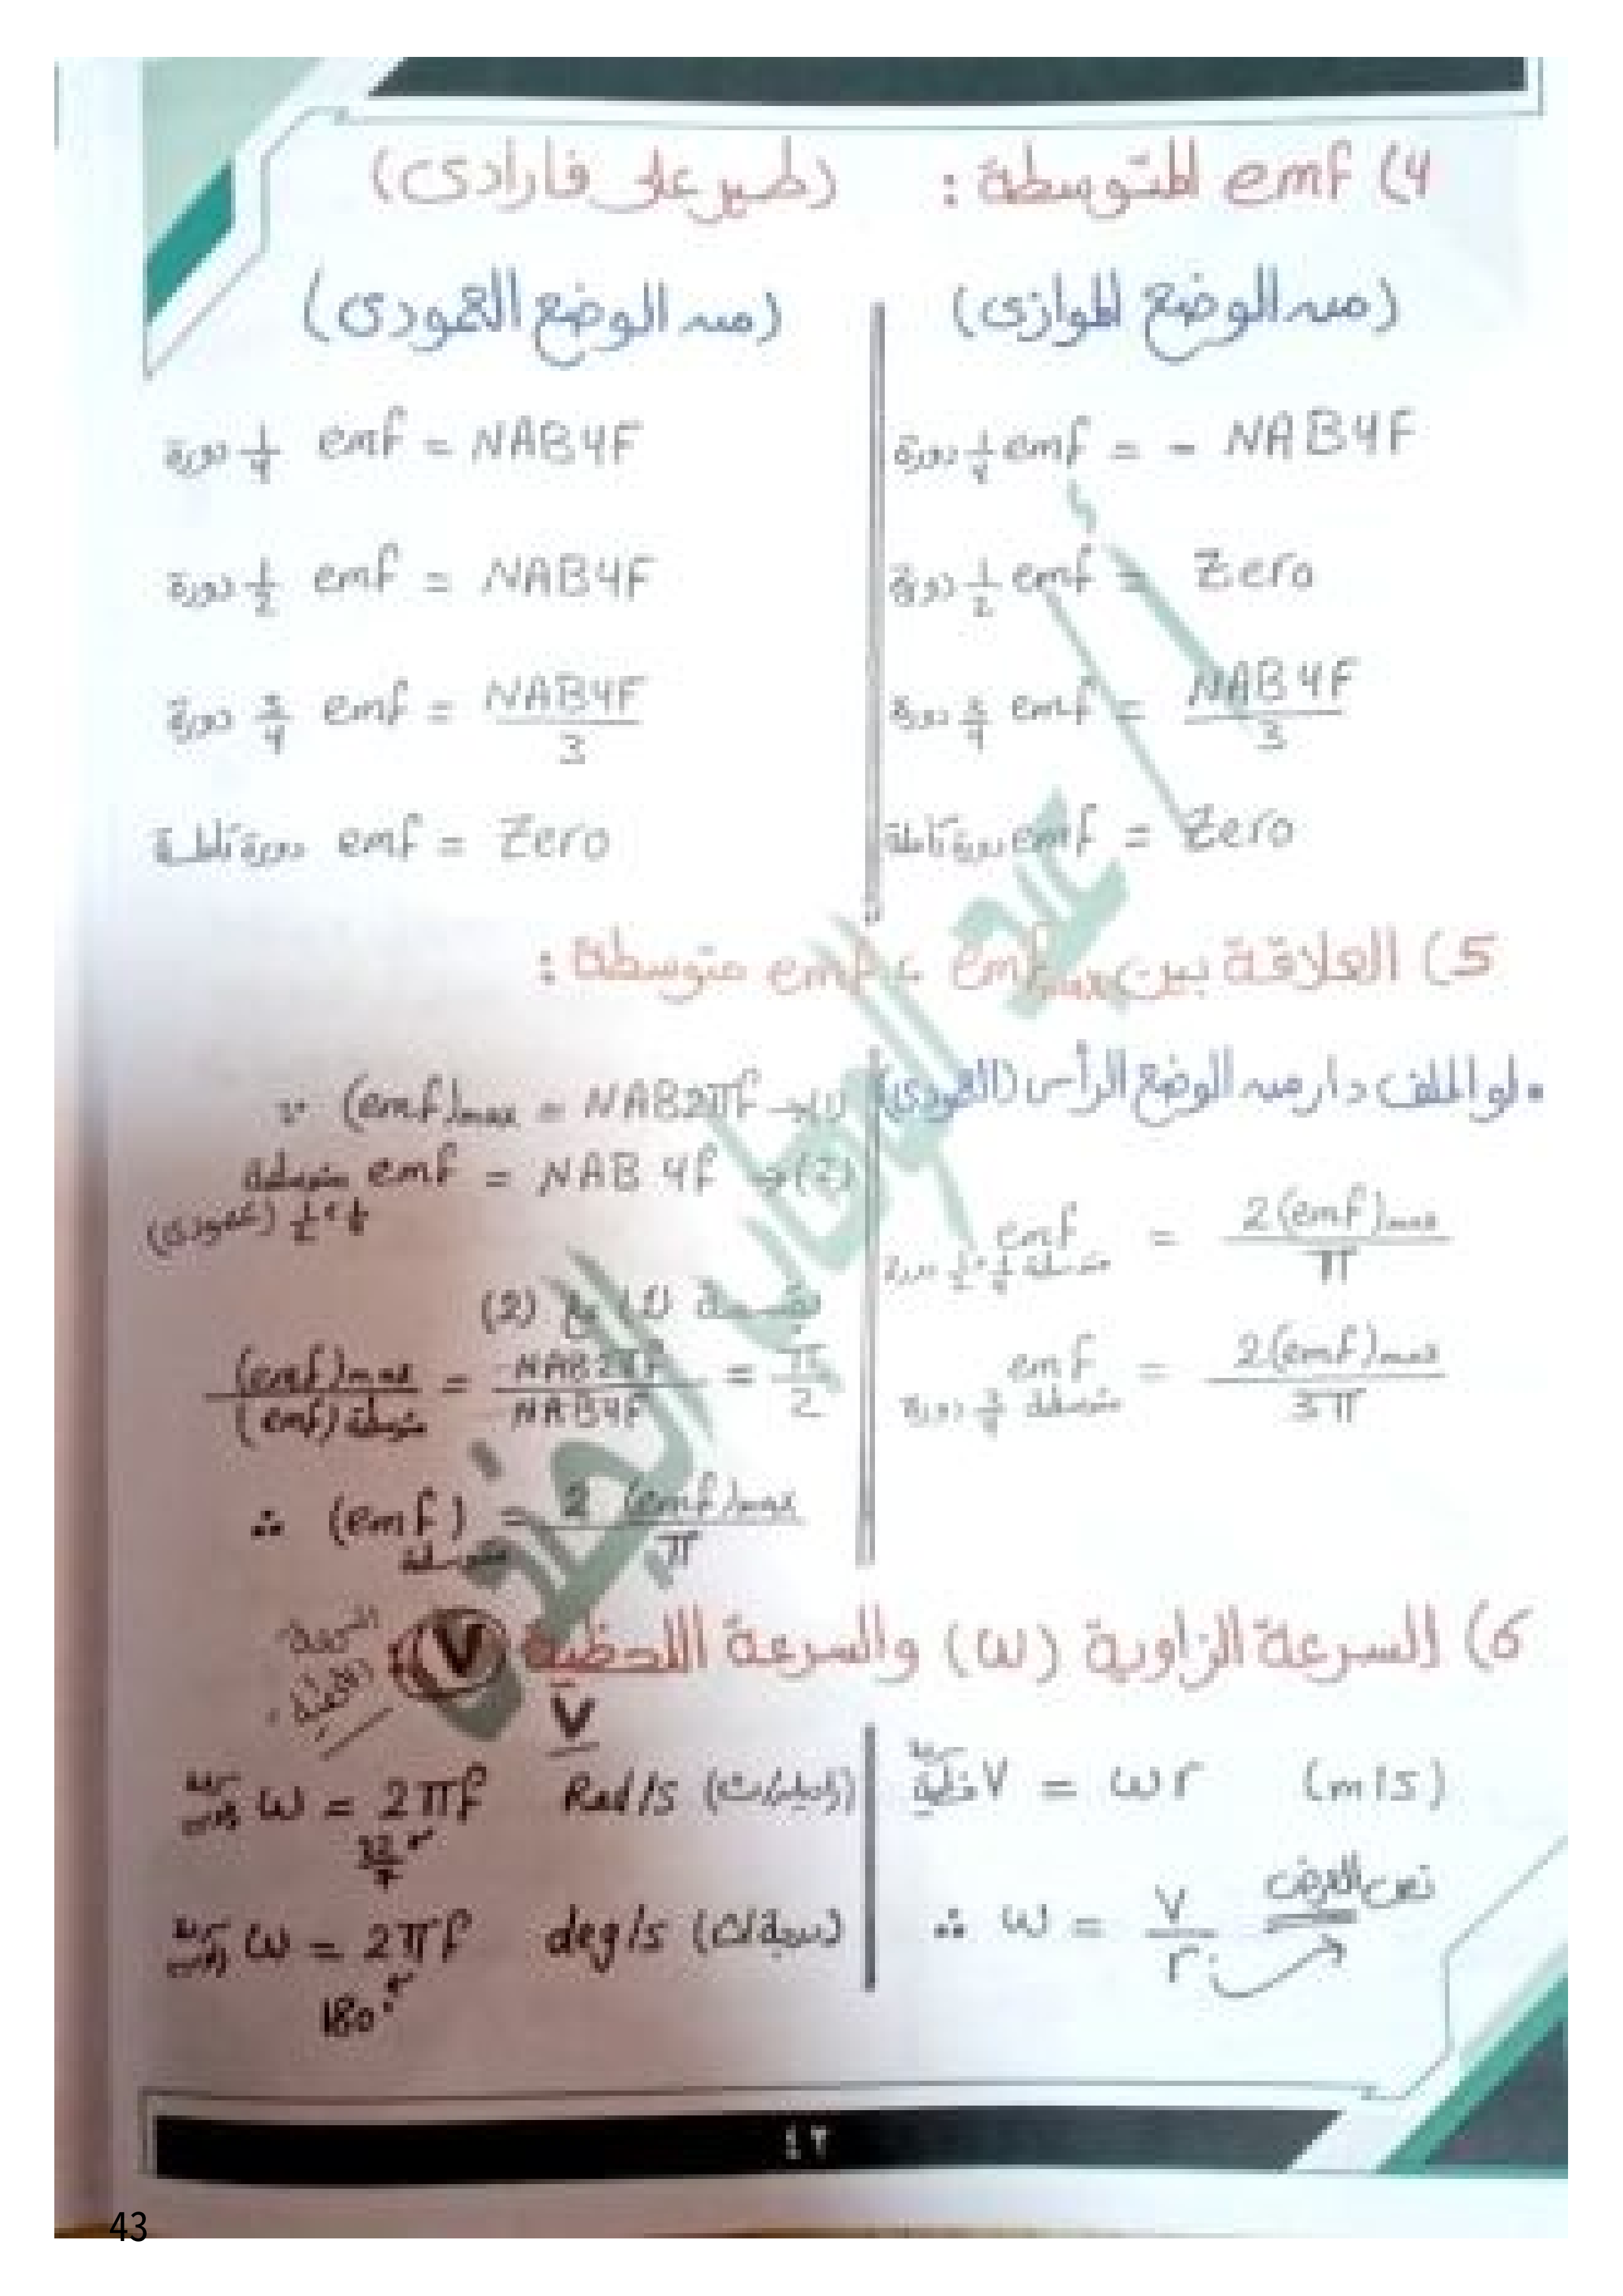 4) emf المتوسطة : (طير على فارادى)
(من الوضع الموازى)
1/4 دورة emf = - NAB4F
1/2 دورة emf = Zero
3/4 دورة emf = NAB4F / 3
دورة كاملة emf = Zero
(من الوضع العمودى)
1/4 دورة emf = NAB4F
1/2 دورة emf = NAB4F
3/4 دورة emf = NAB4F / 3
دورة كاملة emf = Zero
5) العلاقة بين emf max ، emf متوسطة :
• لو الملف دار من الوضع الرأسى (العمودى)
emf متوسطة 1/4 ، 1/2 دورة = 2(emf)max / π
emf متوسطة 3/4 دورة = 2(emf)max / 3π
∵ (emf)max = NAB2πf → (1)
emf متوسطة = NAB 4f → (2)
1/4 ، 1/2 (عمودى)
بقسمة (1) ع (2)
(emf)max / (emf) متوسطة = NAB2πF / NAB4F = π / 2
∴ (emf) متوسطة = 2 (emf)max / π
6) السرعة الزاوية (ω) والسرعة اللحظية V :
السرعة
الخطية
V
V خطية = ωr (m/s)
∴ ω = V / r
نص العرض
ω = 2πf Rad/s (راديان/ث)
22/7
ω = 2πf deg/s (درجة/ث)
180°
٤٢
43